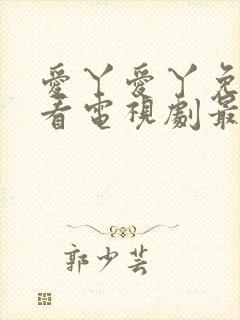 愛丫愛丫免
看電視劇最
郭少芸